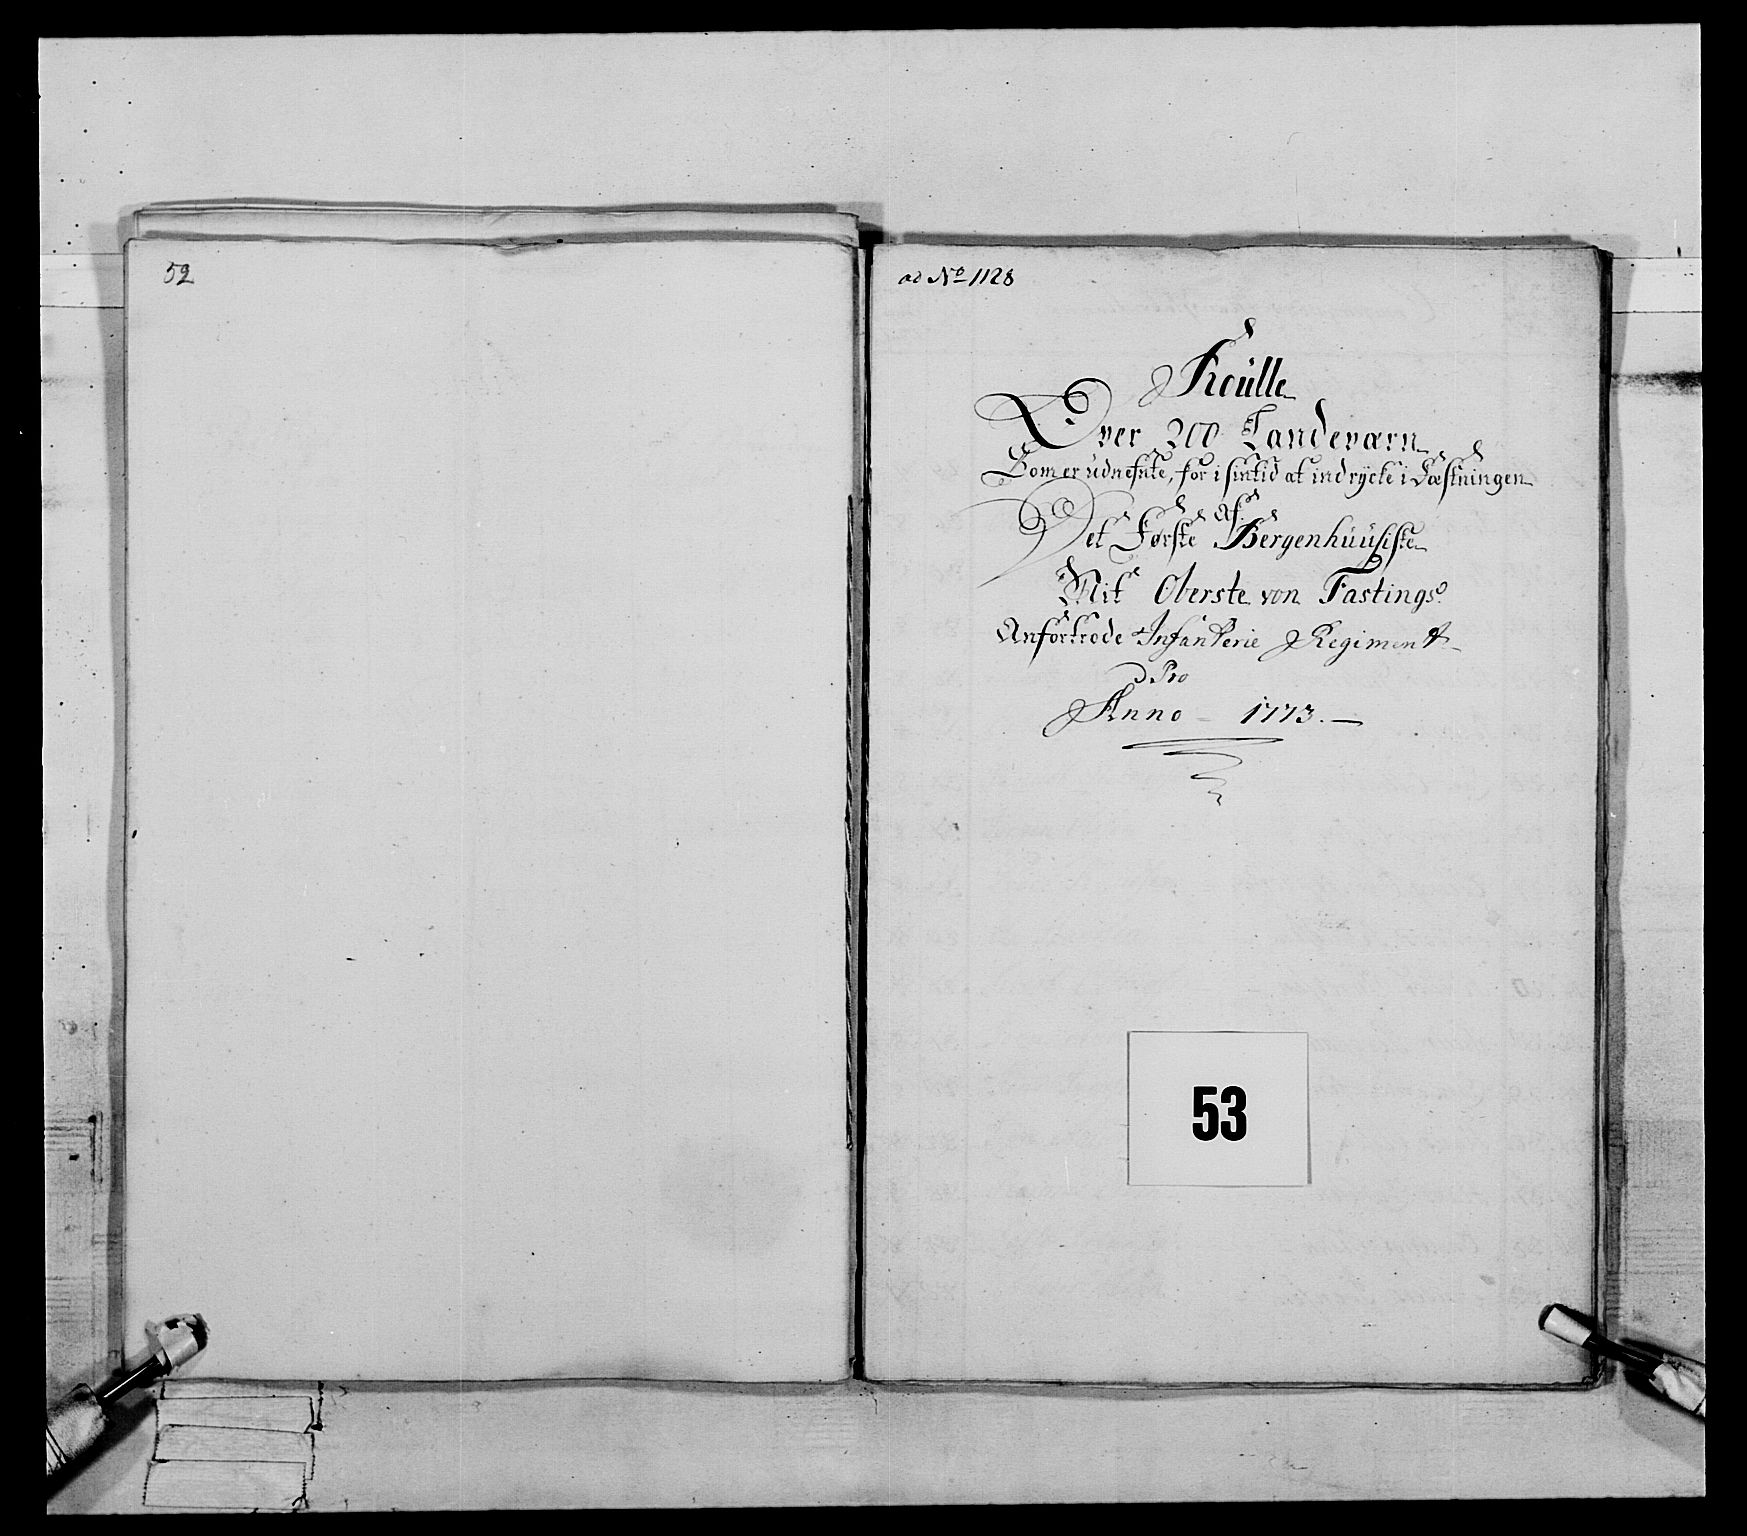 52
ad No 1128
Roulle
Over 200 Landeværn
Som er udnefnte, for i sin tid at indrycke i Fæstningen
Af
Det Første Bergenhuusiske
Mit Oberste von Fastings
Anfortrode Infanterie Regiment
Pro
Anno - 1773. -
53